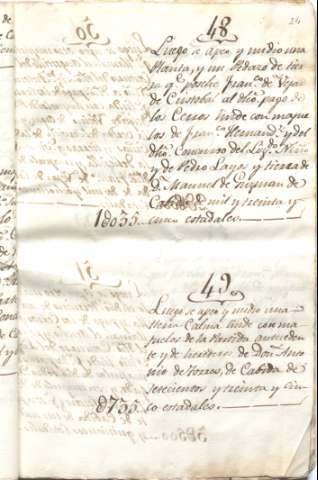 24
48
Luego se apeo y midio una
Planta, y un Pedazo de tier
rra q.e posehe Fran.co de
de Cordoba al dho. pago de
los Cerros linde con majue
los de Fran.co Hernand.z y del
dho.
y de Pedro Layos, y tierra de
D. Manuel de Guzman de
Cabida de mil y treinta y
1U035.. cinco estadales.
49
Luego se apeo y midio una
tierra Calma linde con ma
juelos de la Partida anteceden
te y de herederos de Don Anto
nio de Torres, de Cabida de
setecientos y treinta y cin
U735.. co estadales.